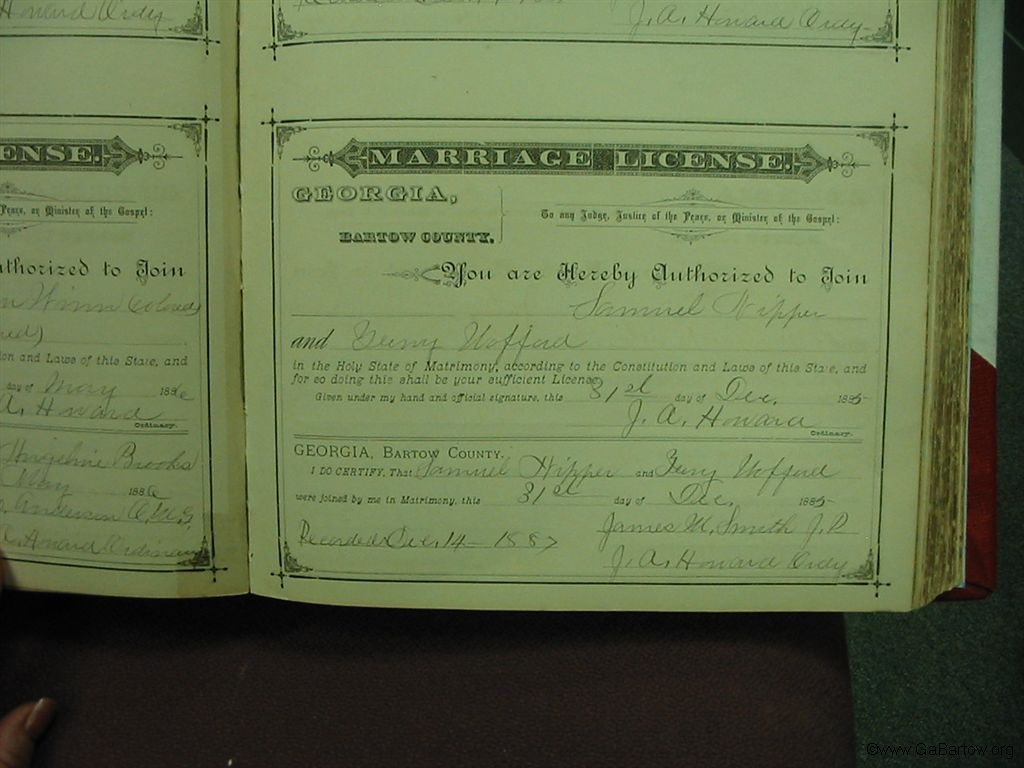 Howard Ordy
J. A. Howard Ordy
ENSE.
Peace, or Minister of the Gospel:
uthorized to Join
n Winn Colored
red)
ion and Laws of this State, and
day of May 1886
A. Howard
Ordinary.
Angeline Brooks
May 1886
Anderson
Howard Ordinary
MARRIAGE LICENSE.
GEORGIA,
BARTOW COUNTY.
To any Judge, Justice of the Peace, or Minister of the Gospel:
You are Hereby Authorized to Join
Samuel Hipper
and Feny Wofford
in the Holy State of Matrimony, according to the Constitution and Laws of this State, and
for so doing this shall be your sufficient License.
Given under my hand and official signature, this 31st day of Dec. 1885
J. A. Howard
Ordinary.
GEORGIA, BARTOW COUNTY.
I DO CERTIFY, That Samuel Hipper and Feny Wofford
were joined by me in Matrimony, this 31st day of Dec. 1885
James M. Smith J. P.
Recorded Dec. 14 1887
J. A. Howard Ordy
©www.GaBartow.org